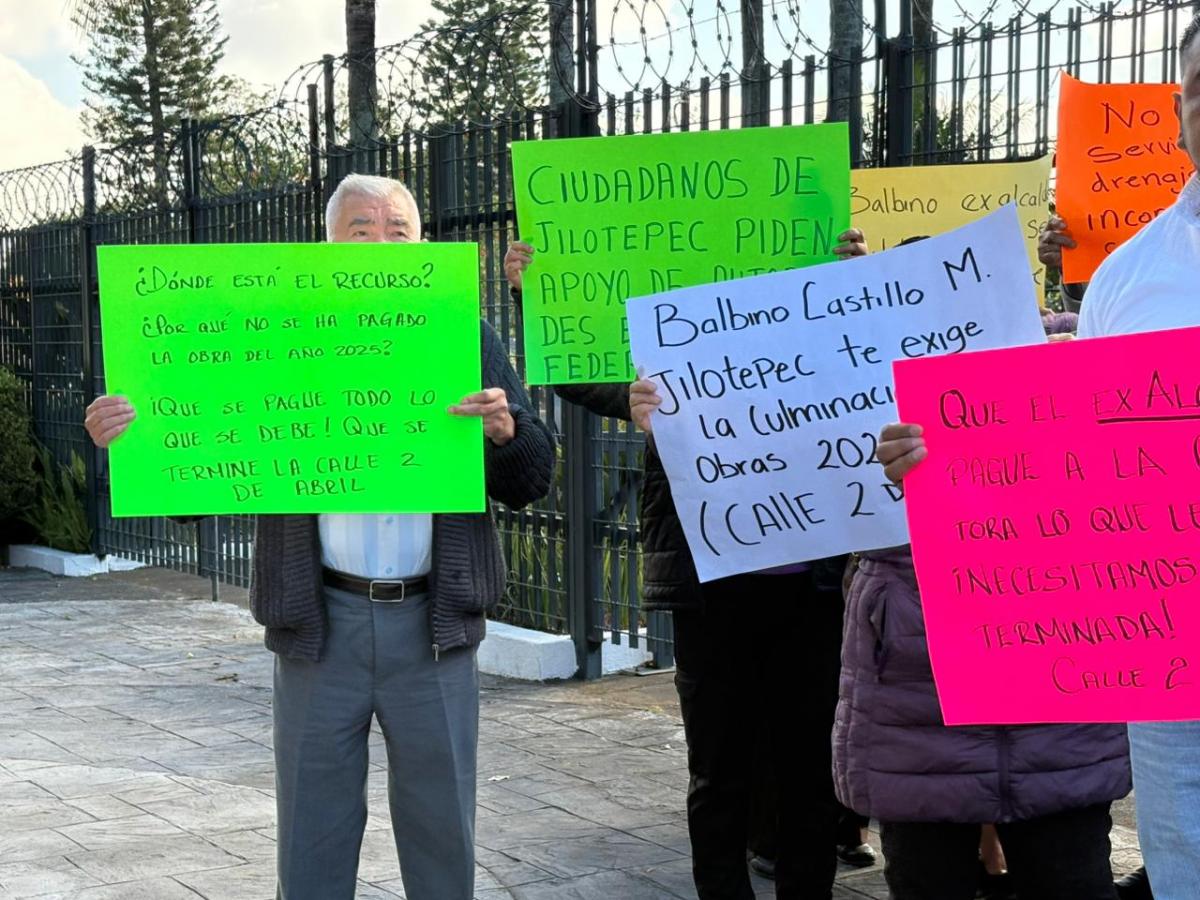 ¿DÓNDE ESTÁ EL RECURSO?
¿POR QUÉ NO SE HA PAGADO
LA OBRA DEL AÑO 2025?
¡QUE SE PAGUE TODO LO
QUE SE DEBE! QUE SE
TERMINE LA CALLE 2
DE ABRIL
CIUDADANOS DE
JILOTEPEC PIDEN
APOYO DE
DES
FEDER
Balbino Castillo M.
Jilotepec te exige
la Culminaci
Obras 202
(CALLE 2 D
Balbino exalcal
No
Servi
drenaj
incon
QUE EL EX AL
PAGUE A LA
TORA LO QUE LE
¡NECESITAMOS
TERMINADA!
CALLE 2